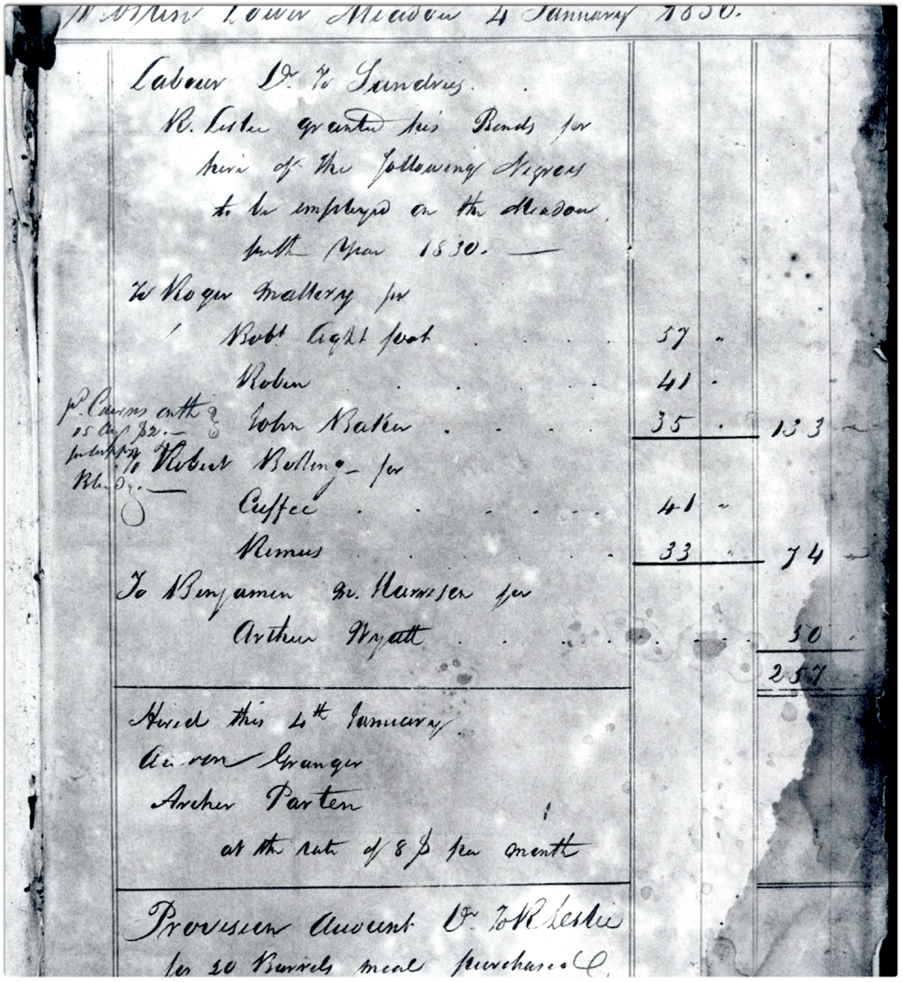 Lower Meadow 4 January 1830.
Labour Dr. To Sundries.
R. Leslie granted his Bonds for
hire of the following Negroes
to be employed on the Meadow
year 1830. —
To Roger Mallery for
Robt Lightfoot . . . . 57 "
Robin . . . . 41 "
John Baker . . . . 35 " 133
To Robert Bolling for
Cuffee . . . . 41 "
Remus . . . . 33 " 74
To Benjamin Harrison for
Arthur Wyatt . . . . 50
257
Hired this 4th January
Aaron Granger
Archer Parten
at the rate of 8 $ per month
Provision Account Dr. To R Leslie
for 20 Barrels meal purchased